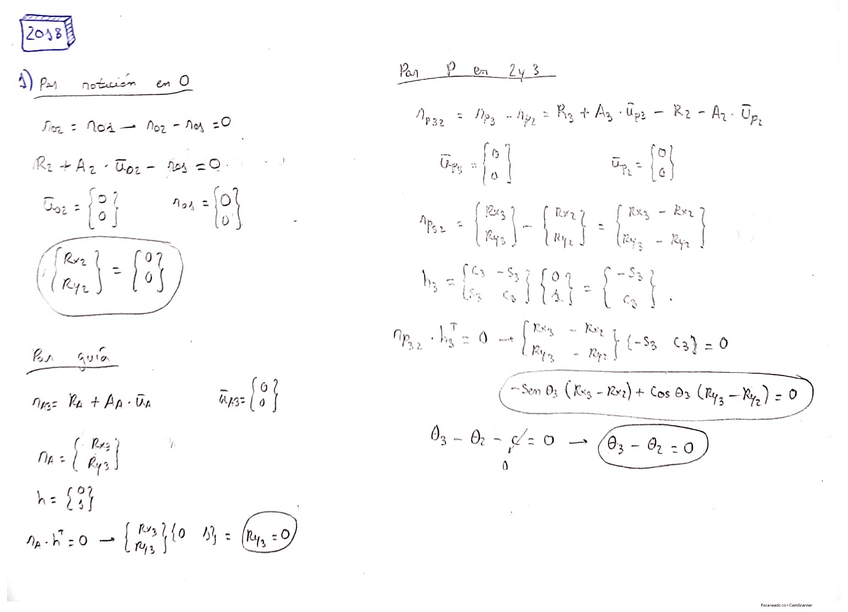 2018
1) Par rotación en O
r02 = r01 → r02 - r01 = 0
R2 + A2 · ū02 - r01 = 0
ū02 = {0 0} r01 = {0 0}
{Rx2 Ry2} = {0 0}
Par guía
rA3 = RA + AA · ūA ūA3 = {0 0}
rA = {Rx3 Ry3}
h = {0 1}
rA · hᵀ = 0 → {Rx3 Ry3} {0 1} = Ry3 = 0
Par P en 2 y 3
rP32 = rP3 - rP2 = R3 + A3 · ūP3 - R2 - A2 · ūP2
ūP3 = {0 0} ūP2 = {0 0}
rP32 = {Rx3 Ry3} - {Rx2 Ry2} = {Rx3 - Rx2 Ry3 - Ry2}
h3 = {C3 -S3 S3 C3} {0 1} = {-S3 C3}.
rP32 · h3ᵀ = 0 → {Rx3 - Rx2 Ry3 - Ry2} {-S3 C3} = 0
-Sen θ3 (Rx3 - Rx2) + Cos θ3 (Ry3 - Ry2) = 0
θ3 - θ2 - c = 0 → θ3 - θ2 = 0
0
Escaneado con CamScanner